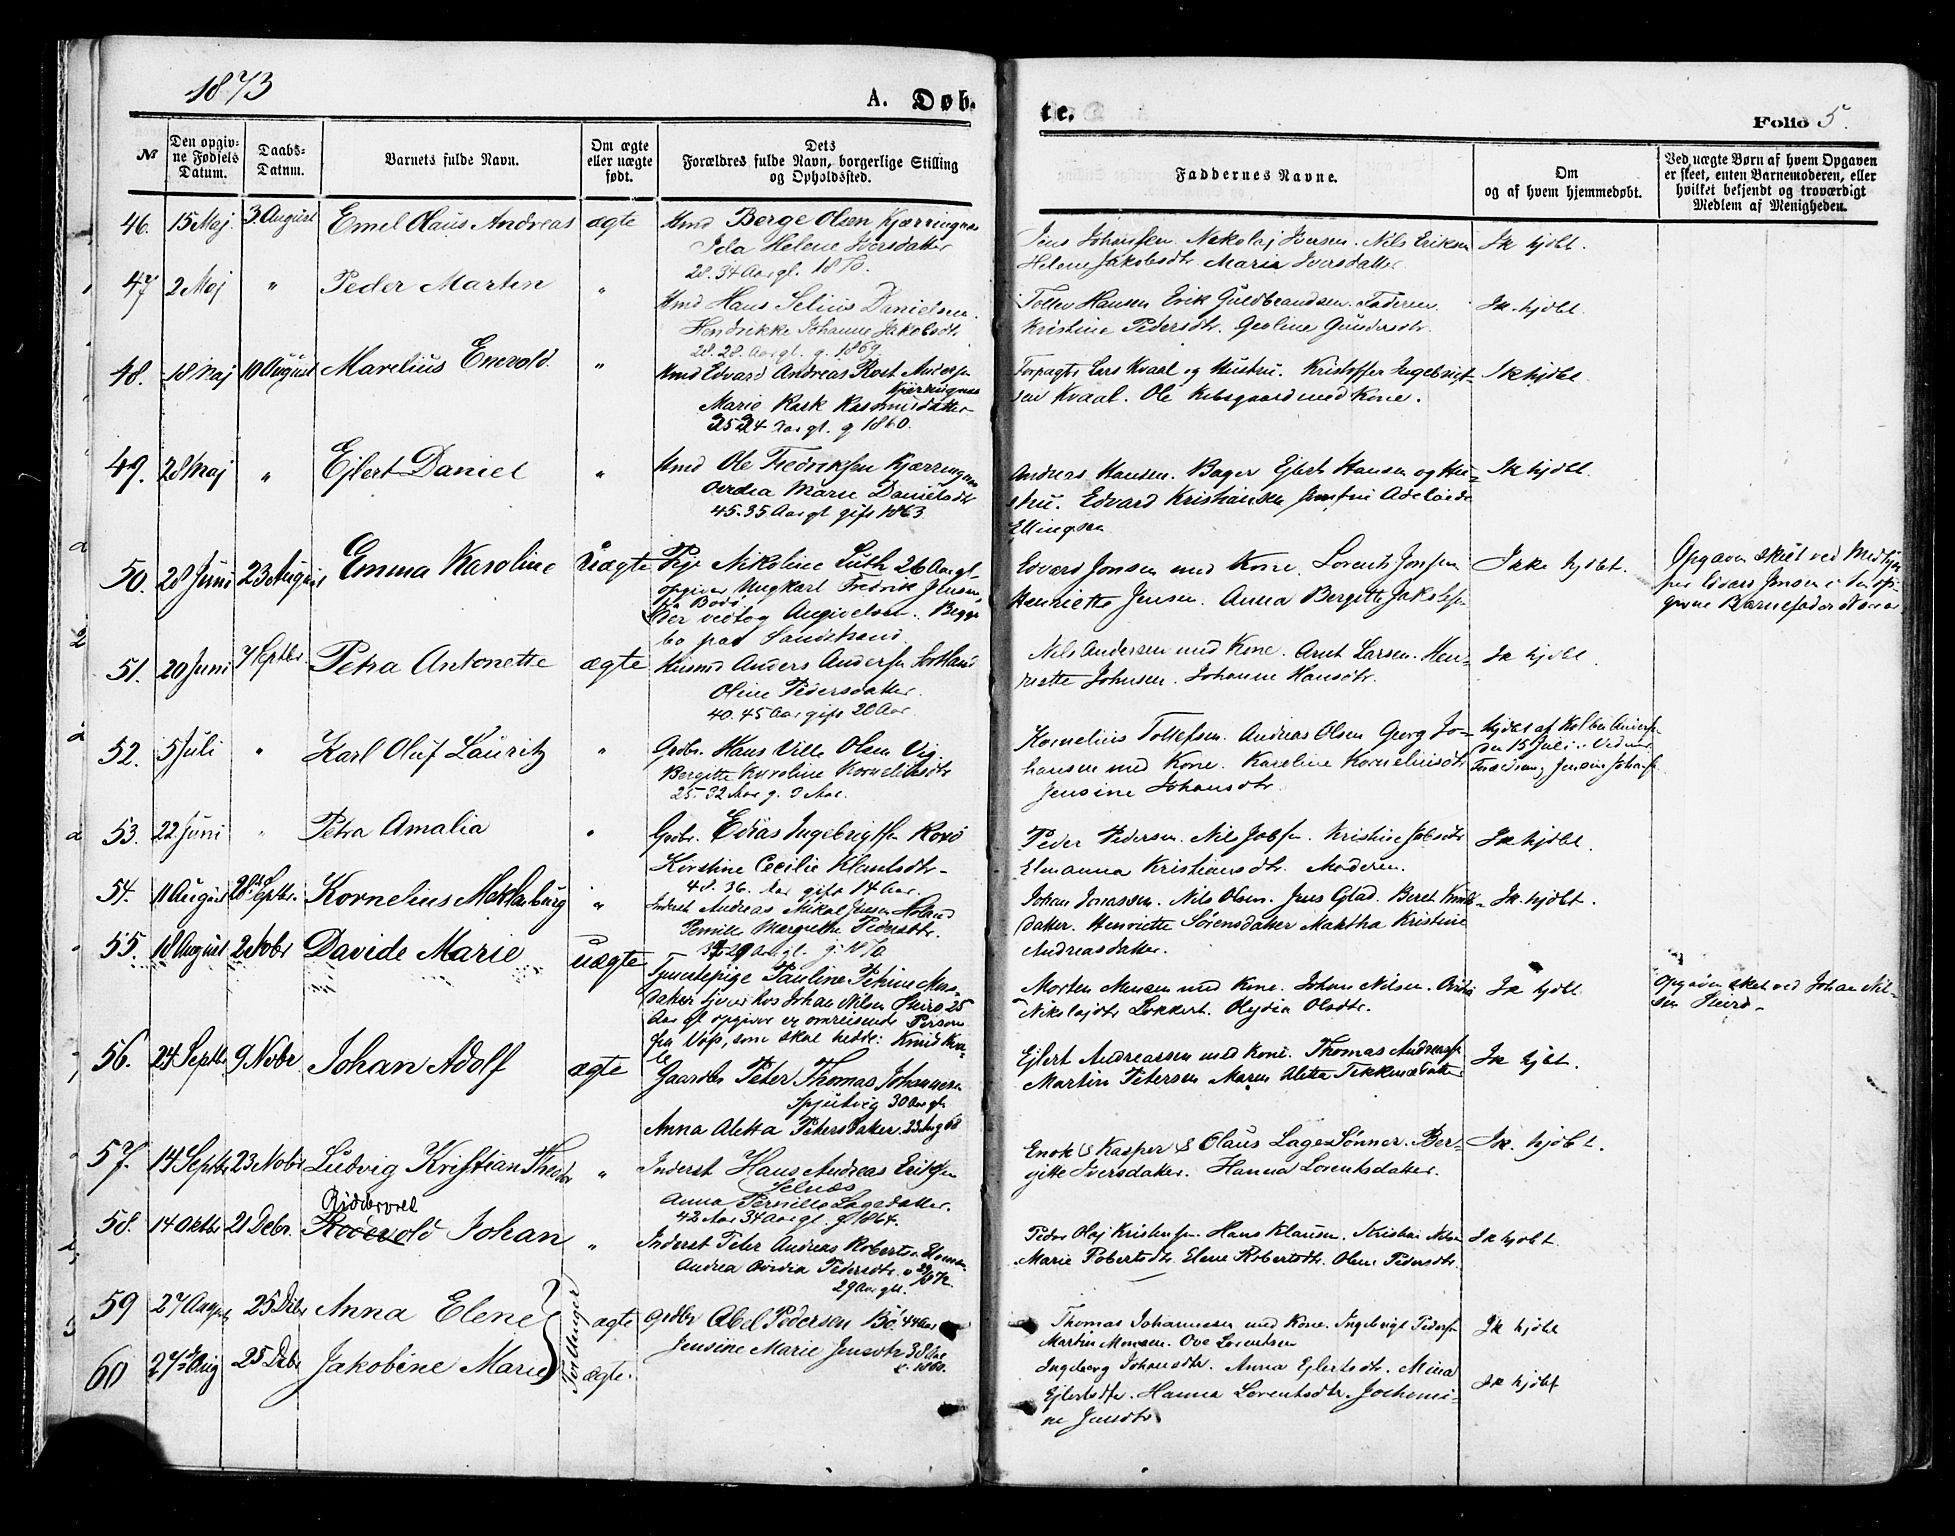 1873
A. Døb-
te.
Folio 5.
№
Den opgivne Fødsels Datum.
Daabs-Datum.
Barnets fulde Navn.
Om ægte eller uægte født.
Dets Forældres fulde Navn, borgerlige Stilling og Opholdssted.
Faddernes Navne.
Om og af hvem hjemmedøbt.
Ved uægte Børn af hvem Opgaven er skeet, enten Barnemoderen, eller hvilket bekjendt og troværdigt Medlem af Menigheden.
46. 15 Maj. 3. August Emel Olaus Andreas ægte Kmd Berge Olsen Kjærringnæs
Ida Helene Iversdatter
28. 34 Aar gl. 1870.
Jens Johansen. Nikolaj Iversen. Nils Eriksen Ik hjdbt.
Helene Jakobsdtr. Maria Iversdatter.
47 2 Maj " Peder Martin "
Kmd Hans Selius Danielsen
Hendrikke Johanne Jakobsdtr.
28. 28. Aar gl. g. 1869.
Tollev Hansen Erik Guldbrandsen. Faderen Ik. hjdbt.
Kristine Pedersdtr. Geoline Gundersdtr.
48. 18 Maj 10 August Marelius Enevold. " Kmd Edvard Andreas Rost Andersen
Kjærringnæs
Marie Rask Rasmusdatter
25 24 Aar gl. g 1860.
Forpagter Lars Kvaal og Hustru. Kristoffer Ingebrigt- Ik hjdbt.
sen Kvaal. Ole Kibsgaard med Kone.
49. 28 Maj " Ejlert Daniel " Kmd Ole Fredriksen Kjærringnæs
Ovedia Marie Danielsdtr
45. 35 Aar gl gift 1863
Andreas Hansen. Bager Ejlert Hansen og Hu- Ik hjdbt.
stru. Edvard Kristiansen Jomfru Adelaide
Ellingsen
50. 28 Juni 23 August Emma Karoline Uægte Pige Nikoline Luth 26 Aar gl.
opgiver Ungkarl Fredrik Jensen
fra Bodø.
Der vedtog Angivelsen. Begge
bo paa Sandstrand.
Edvard Jensen med Kone. Lorents Jensen Ikke hjdbt.
Henriette Jensen. Anna Bergitte Jakobsen
Opgaven skeet ved Medhjæl-
per Edvard Jensen i den op-
givne Barnefaders Nærvær
51. 20 Juni 7 Septbr. Petra Antonette ægte Husmd Anders Andersen Sortland
Oline Pedersdatter.
40. 45 Aar gift 20 Aar.
Nils Andersen med Kone. Arnt Larsen. Hen- Ik hjdbt.
riette Johnsen. Johanne Hansdtr.
52. 5 Juli " Karl Oluf Lauritz " Grdbr. Hans Ville Olsen Vig
Bergitte Karoline Kornelisdtr
25. 32 Aar g. 3 Aar.
Kornelius Tollefsen. Andreas Olsen Georg Jo-
hansen med Kone. Karoline Korneliusdtr
Jensine Johansdtr.
53. 22 Juni " Petra Amalia " Grdbr. Edias Ingebrigtsen
Kirstine Cecilie Klemetsdtr-
48. 36. Aar gift 14 Aar.
Peder Pedersen. Nils Jobsen. Kristine Jobsdtr Ik hjdbt.
Elenanna Kristiansdtr. Moderen.
54. 11 August 28de Septbr. Kornelius Meklenburg " Inderst Andreas Mikal Jensen
Pernille Margrethe Pedersdtr.
g. 1870
Johan Jonassen. Nils Olsen. Jens Glad. Beret Knuds- Ik. hjdbt.
datter. Henriette Sørensdatter Martha Kristine
Andreasdatter.
55. 18 August 2 Nobr Davide Marie uægte Tjenestepige Pauline Petrine Mons-
datter tjener hos Johan Nilsen 25
Aar gl opgiver en omreisende Person
fra Vos, som skal hedde: Knud
Morten Monsen med Kone. Johan Nilsen. Ik hjdbt.
Nikolajdtr Lokkert. Olydia Olsdtr.
Opgaven skeet ved Johan Nil-
sen
56. 24 Septbr. 9 Nobr Johan Adolf ægte Gaardbr Peter Thomas Johannesen
Spjutvig 30 Aar gl.
Anna Aletta Petersdatter. 23 Aug 68
Ejlert Andreassen med Kone. Thomas Andreassen Ik hjbt.
Martin Petersen Maren Aletta
57. 14 Septbr 23 Nobr Ludvig Kristian Theodor " Inderst Hans Andreas Eriksen
Selnæs
Anna Pernille Lagesdatter.
42 Aar 34 Aar gl. g 1864.
Enok & Kasper & Olaus Lage Sønner. Ber- Ik. hjdbt.
gitte Iversdatter. Hanna Lorentsdatter.
58. 14 Oktbr 21 Debr. Riddervold Johan " Inderst Peter Andreas Roberts.
Andrea Ovidia Pedersdtr.
29 Aar gl.
Peder Olaj Kristensen. Hans Klausen. Kristian Nilsen Ik hjdbt.
Marie Robertsdtr. Elene Robertsdtr. Oline Pedersdtr.
Tvillinger
59 27 August 25 Debr Anna Elene ægte Grdbr Abel Pedersen Bø. 44 Aar
Jensine Marie Jensdtr 38 Aar
g. 1860.
Thomas Johannessen med Kone. Ingebrigt Pedersen Ik hjdbt
Martin Monsen. Ove Lorentsen
60 27de Aug 25 Debr Jakobine Marie ægte.
Ingeborg Johansdtr. Anna Ejlertsdtr. Mina Ik hjdbt
Ejlertsdtr. Hanna Lorentsdtr. Jochomi-
ne Jensdtr.